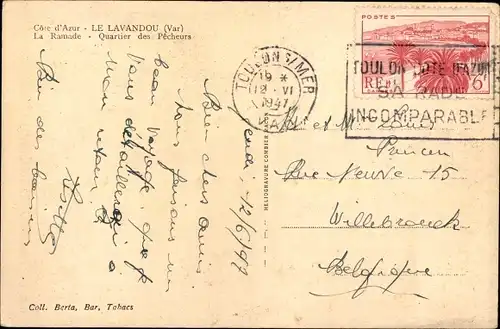 Côte d'Azur - LE LAVANDOU (Var)
La Ramade - Quartier des Pêcheurs
jeudi 12/6/47
Bien chers amis
Nous faisons un
beau voyage, que je
vous détaillerai à
mon retour.
Bien des baisers
POSTES
RF
6F
TOULON S/MER
19 *
12 - VI
1947
VAR
TOULON COTE D'AZUR
SA RADE
INCOMPARABLE
HELIOGRAVURE COMBIER
et Me Louis
Rue Neuve 15
Willebroeck
Belgique
Coll. Berta, Bar, Tabacs